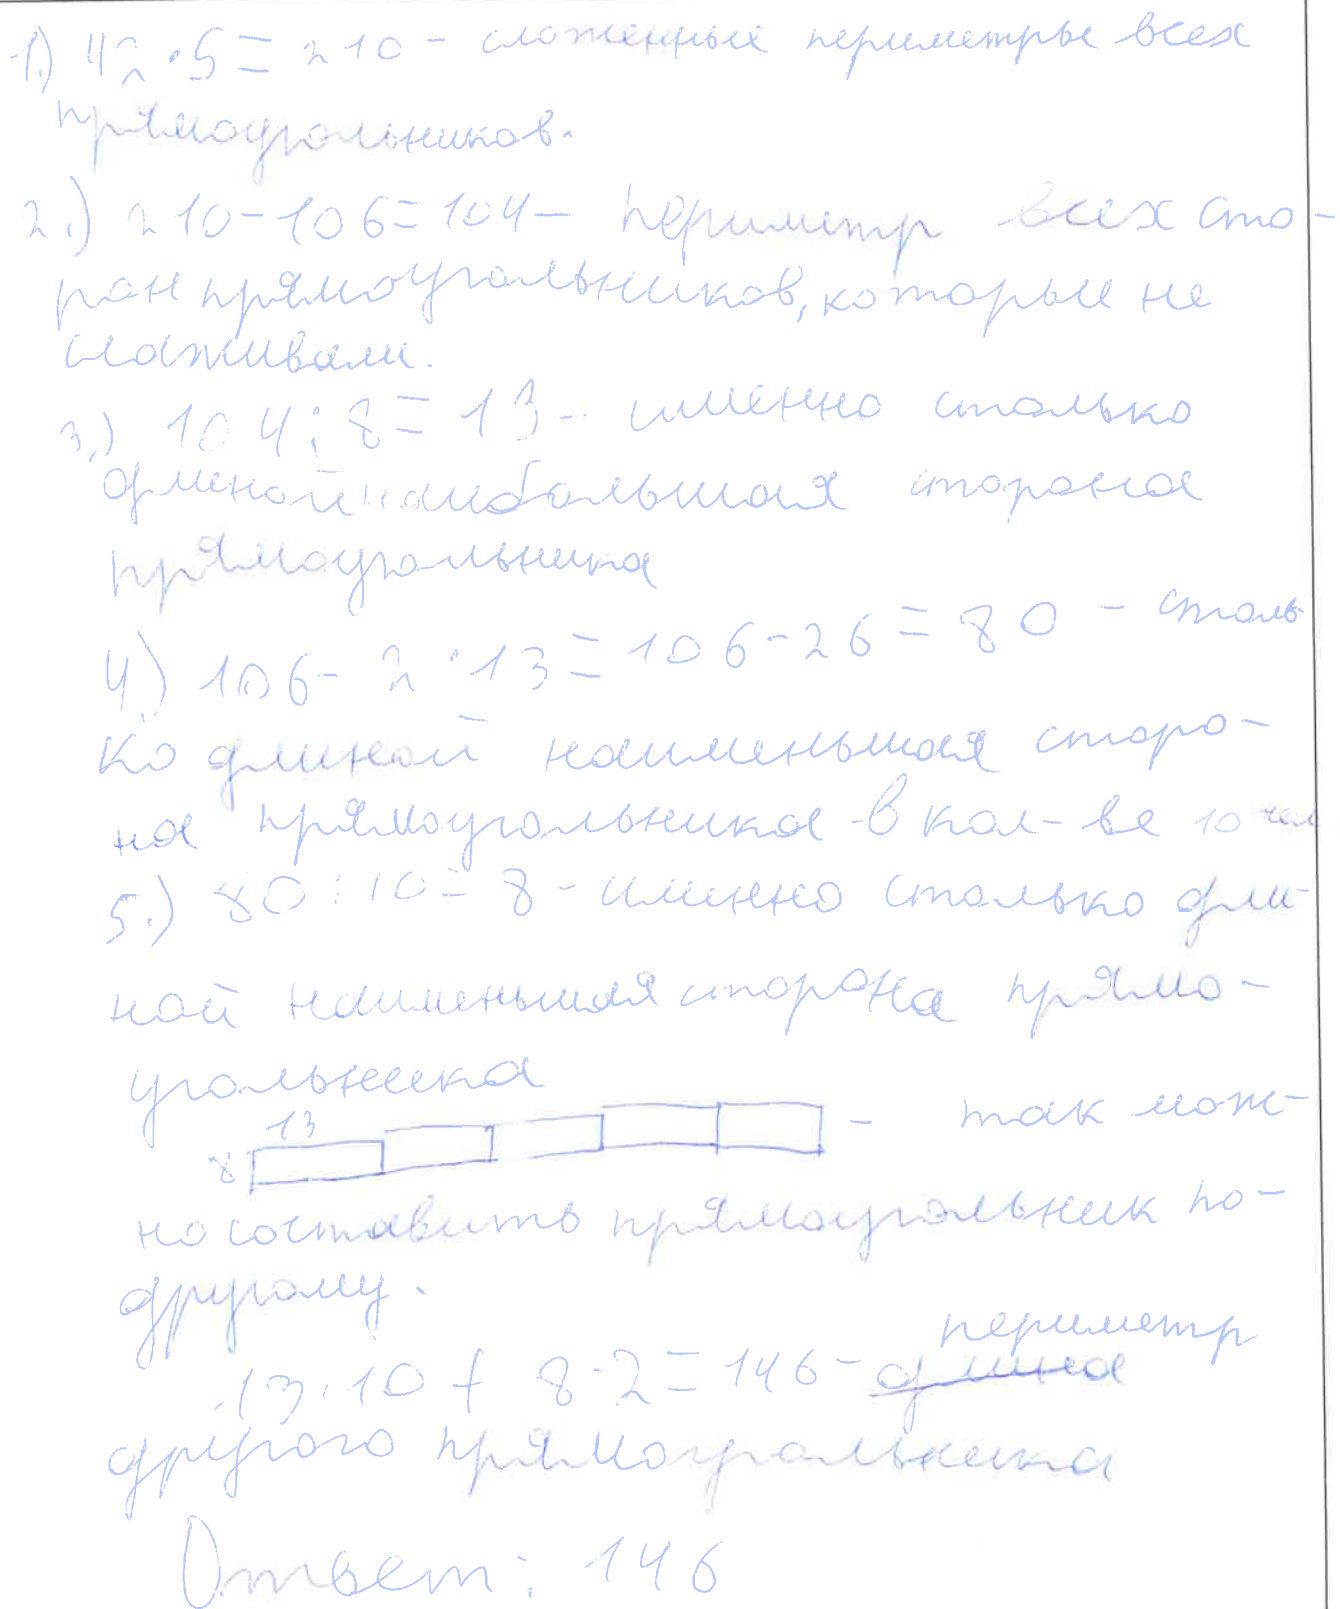 1.) 42·5=210 - сложенные периметры всех
прямоугольников.
2.) 210-106=104- периметр всех сто-
рон прямоугольников, которые не
складывали.
3.) 104:8=13- именно столько
длиной наибольшая сторона
прямоугольника
4.) 106- 2·13=106-26=80 - столь
ко длиной наименьшая сторо-
на прямоугольника в кол-ве 10
5.) 80:10=8 - именно столько дли-
ной наименьшая сторона прямо-
угольника
13
8
- так мож-
но составить прямоугольник по-
другому.
периметр
13·10+8·2=146- длина
другого прямоугольника
Ответ: 146